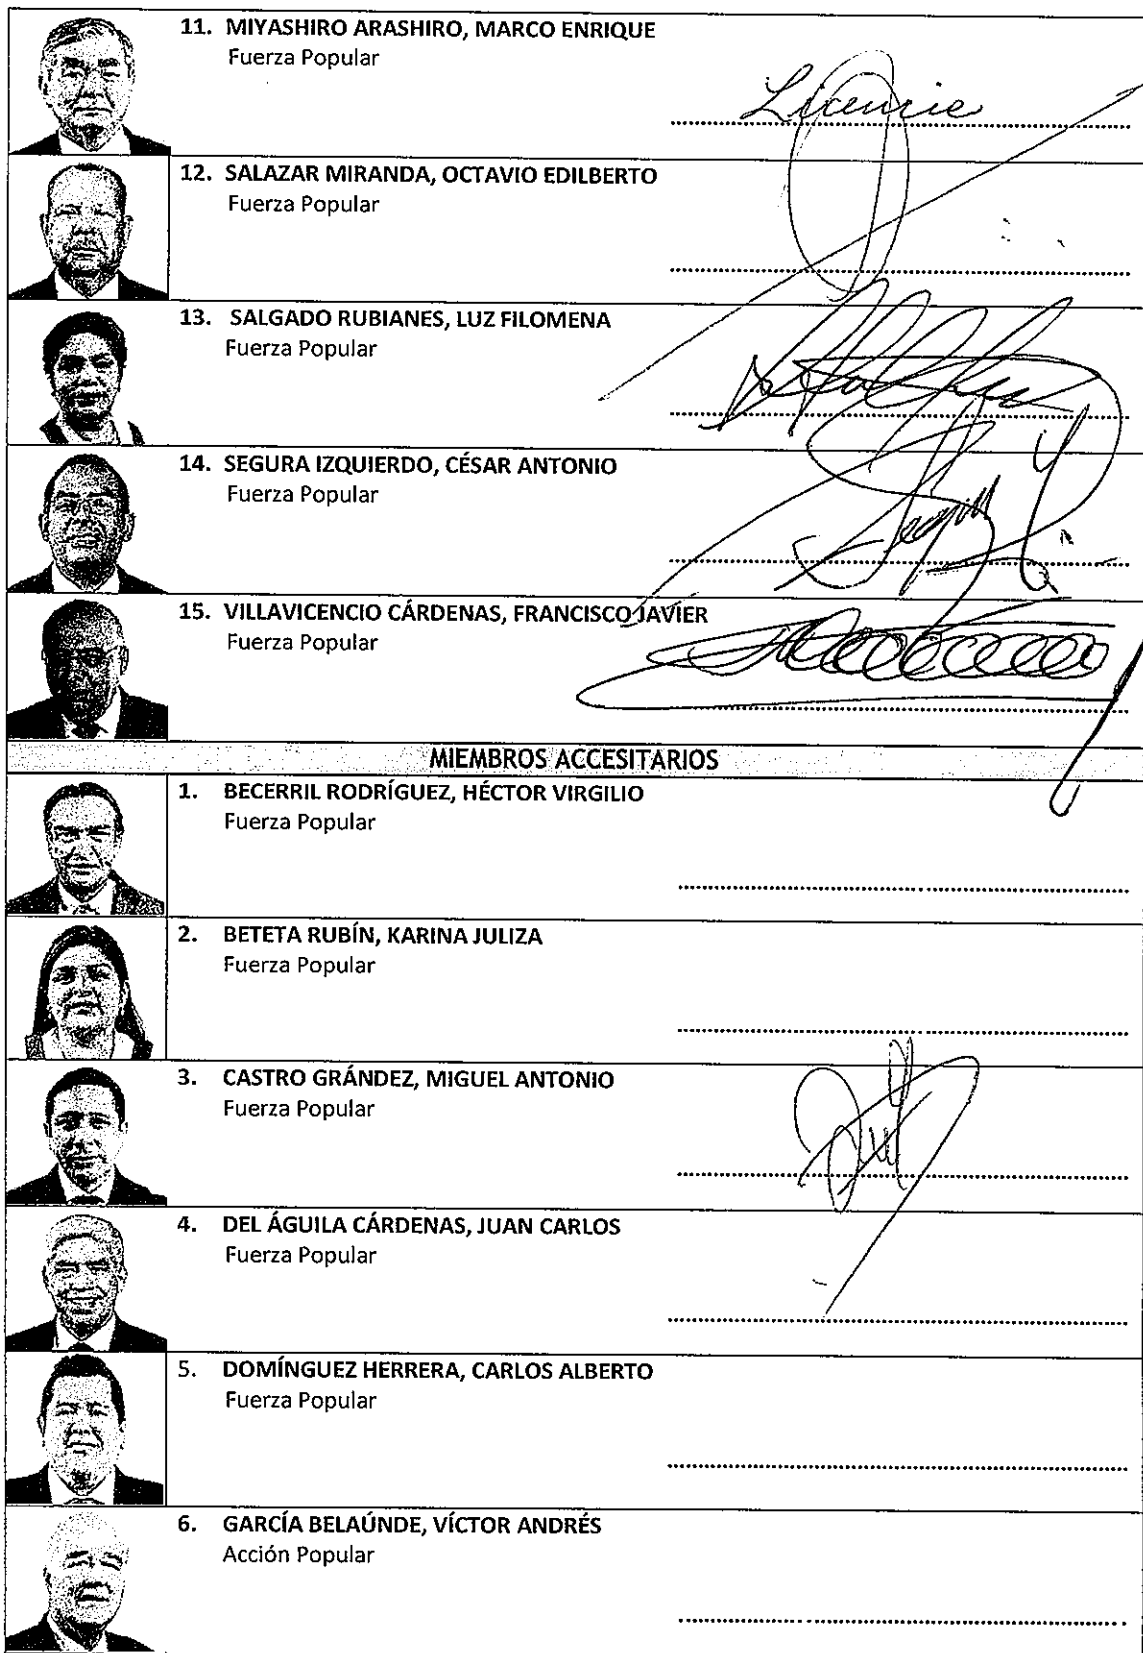 11. MIYASHIRO ARASHIRO, MARCO ENRIQUE
Fuerza Popular
12. SALAZAR MIRANDA, OCTAVIO EDILBERTO
Fuerza Popular
13. SALGADO RUBIANES, LUZ FILOMENA
Fuerza Popular
14. SEGURA IZQUIERDO, CÉSAR ANTONIO
Fuerza Popular
15. VILLAVICENCIO CÁRDENAS, FRANCISCO JAVIER
Fuerza Popular
MIEMBROS ACCESITARIOS
1. BECERRIL RODRÍGUEZ, HÉCTOR VIRGILIO
Fuerza Popular
2. BETETA RUBÍN, KARINA JULIZA
Fuerza Popular
3. CASTRO GRÁNDEZ, MIGUEL ANTONIO
Fuerza Popular
4. DEL ÁGUILA CÁRDENAS, JUAN CARLOS
Fuerza Popular
5. DOMÍNGUEZ HERRERA, CARLOS ALBERTO
Fuerza Popular
6. GARCÍA BELAÚNDE, VÍCTOR ANDRÉS
Acción Popular